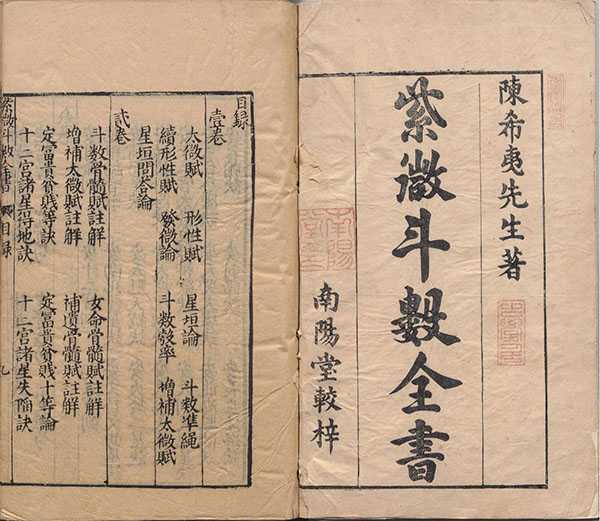 陳希夷先生著
紫微斗數全書
南陽堂較梓
南陽
目録
壹卷
太微賦 形性賦 星垣論 斗数準繩
續形性賦 發微論 斗数發率 增補太微賦
星垣問答論
貳卷
斗数骨髓賦註解 女命骨髓賦註解
增補太微賦註解 補遺骨髓賦註解
定富貴貧賤等訣 定富貴貧賤十等論
十二宮諸星得地訣 十二宮諸星失陷訣
斗數全書 目録